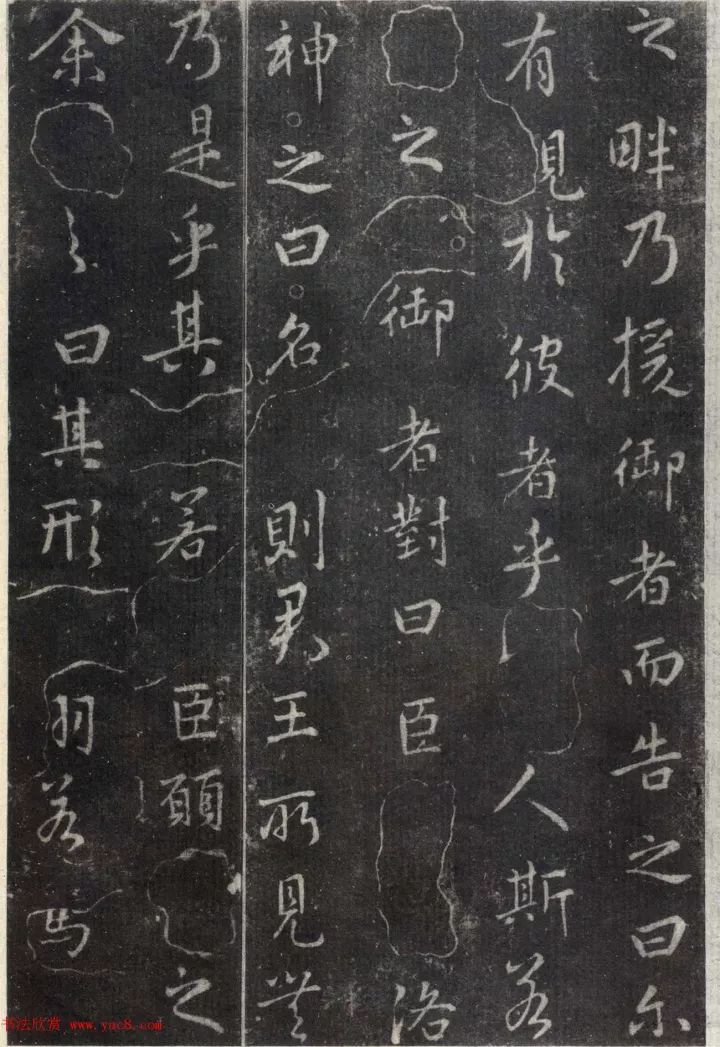 之畔乃援御者而告之曰尓
有見於彼者乎人斯若
之御者對曰臣洛
神之曰名則君王所見無
乃是乎其若臣願之
余之曰其形羽若馬
书法欣赏 www.yac8.com